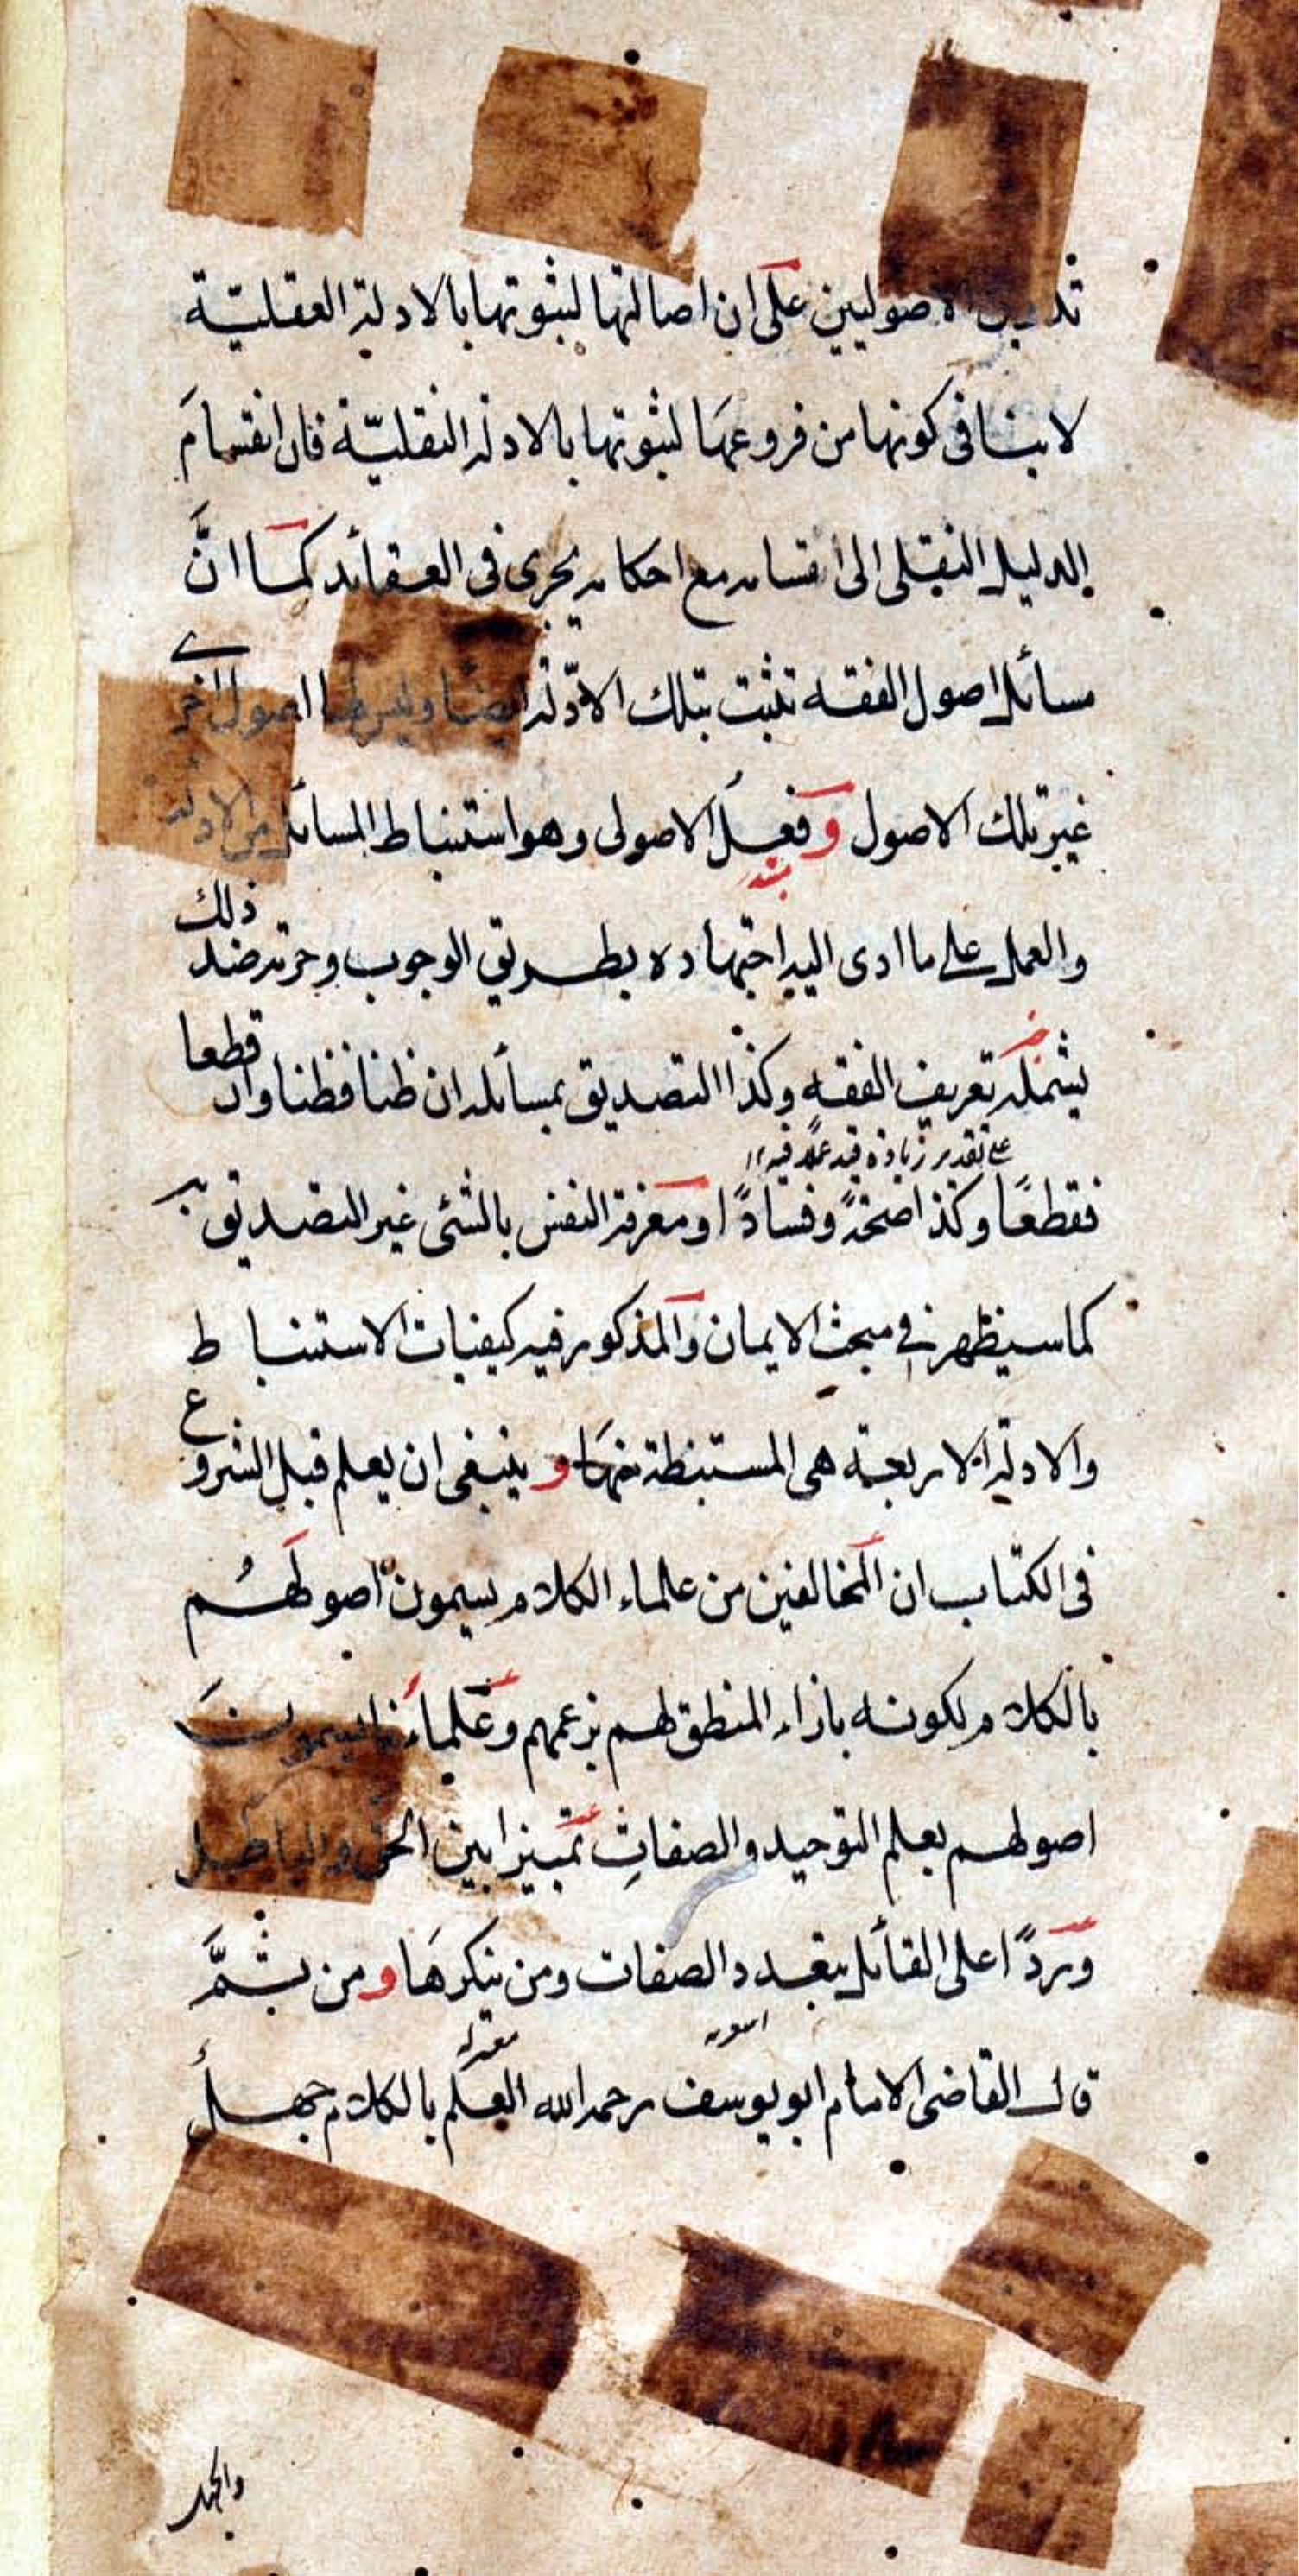 الاصوليين على ان اصالتها لثبوتها بالادلة العقلية
لاينافى كونها من فروعها لثبوتها بالادلة النقلية فان انقسام
الدليل النقلى الى اقسامه مع احكامه يجرى فى العقائد كما انّ
مسائل اصول الفقه تثبت بتلك الادّلة ايضا وليس لها اصول اخرى
غير تلك الاصول وفعل الاصولى وهو استنباط المسائل من الادلة
والعمل على ما ادى اليه اجتهاده بطريق الوجوب وحرمة ضد ذلك
يشمله تعريف الفقه وكذا التصديق بمسائله ان ظنا فظنا وان قطعا
على تقدير زيادة قيد عملا فيه
فقطعًا وكذا صحّةً وفسادًا ومعرفة النفس بالشئ غير التصديق به
كما سيظهر فى مبحث الايمان والمذكور فيه كيفيات الاستنباط
والادلة الاربعة هى المستنبطة منها و ينبغى ان يعلم قبل الشروع
فى الكتاب ان المخالفين من علماء الكلام يسمون اصولهُم
بالكلام لكونه بازاء المنطق لهم بزعمهم وعلماءَنا يسمون
اصولهم بعلم التوحيد والصفاتِ تمييزا بين الحق والباطل
وردًا على القائل بتعدد الصفات ومن ينكرها ومن ثمَّ
قال القاضى الامام ابو يوسف رحمه الله العلم بالكلام جهل
والجهل